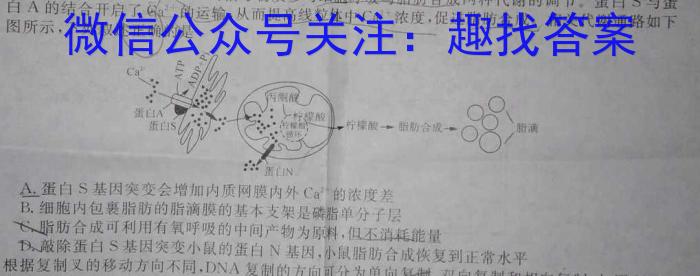 白 A 的结合开启了 Ca²⁺ 的运输,从而提高线粒体中 Ca²⁺ 浓度,促
图所示,
微信公众号关注：趣找答案
Ca²⁺
ATP
ADP+Pi
蛋白A
蛋白S
丙酮酸
柠檬酸
柠檬酸循环
柠檬酸
脂肪合成
脂滴
蛋白N
A. 蛋白 S 基因突变会增加内质网膜内外 Ca²⁺ 的浓度差
B. 细胞内包裹脂肪的脂滴膜的基本支架是磷脂单分子层
C. 脂肪合成可利用有氧呼吸的中间产物为原料,但不消耗能量
D. 敲除蛋白 S 基因突变小鼠的蛋白 N 基因,小鼠脂肪合成恢复到正常水平
根据复制叉的移动方向不同,DNA 复制的方向可分为单向复制、双向复制